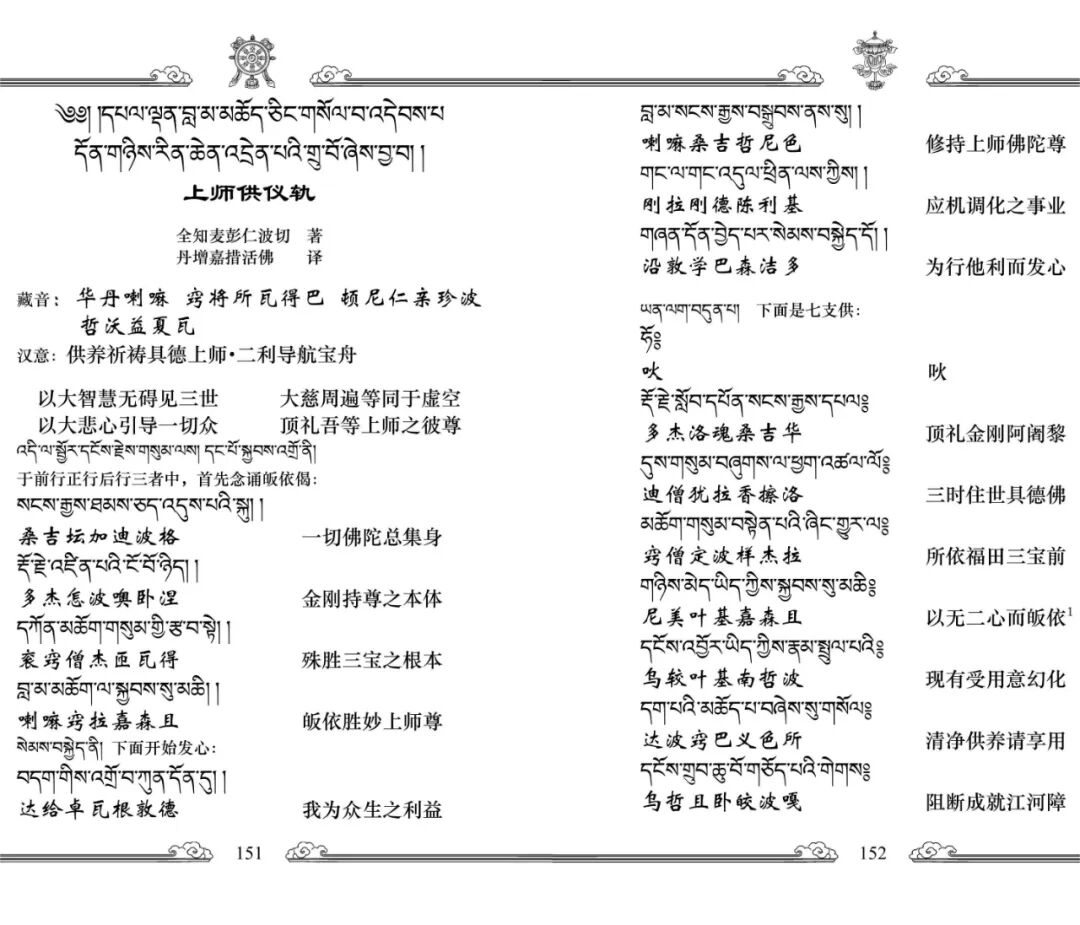 ༄༅། །དཔལ་ལྡན་བླ་མ་མཆོད་ཅིང་གསོལ་བ་འདེབས་པ
དོན་གཉིས་རིན་ཆེན་འདྲེན་པའི་གྲུ་བོ་ཞེས་བྱ་བ། །
上师供仪轨
全知麦彭仁波切 著
丹增嘉措活佛 译
藏音: 华丹喇嘛 窍将所瓦得巴 顿尼仁亲珍波
哲沃益夏瓦
汉意: 供养祈祷具德上师·二利导航宝舟
以大智慧无碍见三世 大慈周遍等同于虚空
以大悲心引导一切众 顶礼吾等上师之彼尊
འདི་ལ་སྦྱོར་དངོས་རྗེས་གསུམ་ལས། དང་པོ་སྐྱབས་འགྲོ་ནི།
于前行正行后行三者中，首先念诵皈依偈:
སངས་རྒྱས་ཐམས་ཅད་འདུས་པའི་སྐུ། །
桑吉坛加迪波格 一切佛陀总集身
རྡོ་རྗེ་འཛིན་པའི་ངོ་བོ་ཉིད། །
多杰怎波噢卧涅 金刚持尊之本体
དཀོན་མཆོག་གསུམ་གྱི་རྩ་བ་སྟེ། །
衮窍僧杰匝瓦得 殊胜三宝之根本
བླ་མ་མཆོག་ལ་སྐྱབས་སུ་མཆི། །
喇嘛窍拉嘉森且 皈依胜妙上师尊
སེམས་བསྐྱེད་ནི། 下面开始发心:
བདག་གིས་འགྲོ་བ་ཀུན་དོན་དུ། །
达给卓瓦根敦德 我为众生之利益
151
བླ་མ་སངས་རྒྱས་བསྒྲུབས་ནས་སུ། །
喇嘛桑吉哲尼色 修持上师佛陀尊
གང་ལ་གང་འདུལ་ཕྲིན་ལས་ཀྱིས། །
刚拉刚德陈利基 应机调化之事业
གཞན་དོན་བྱེད་པར་སེམས་བསྐྱེད་དོ། །
沿敦学巴森洁多 为行他利而发心
ཡན་ལག་བདུན་པ། 下面是七支供:
ཧོ༔
吙 吙
རྡོ་རྗེ་སློབ་དཔོན་སངས་རྒྱས་དཔལ༔
多杰洛魂桑吉华 顶礼金刚阿阇黎
དུས་གསུམ་བཞུགས་ལ་ཕྱག་འཚལ་ལོ༔
迪僧犹拉香擦洛 三时住世具德佛
མཆོག་གསུམ་བསྟེན་པའི་ཞིང་གྱུར་ལ༔
窍僧定波样杰拉 所依福田三宝前
གཉིས་མེད་ཡིད་ཀྱིས་སྐྱབས་སུ་མཆི༔
尼美叶基嘉森且 以无二心而皈依1
དངོས་འབྱོར་ཡིད་ཀྱིས་རྣམ་སྤྲུལ་པའི༔
乌较叶基南哲波 现有受用意幻化
དག་པའི་མཆོད་པ་བཞེས་སུ་གསོལ༔
达波窍巴义色所 清净供养请享用
དངོས་གྲུབ་ཆུ་བོ་གཅོད་པའི་གེགས༔
乌哲且卧皎波嘎 阻断成就江河障
152